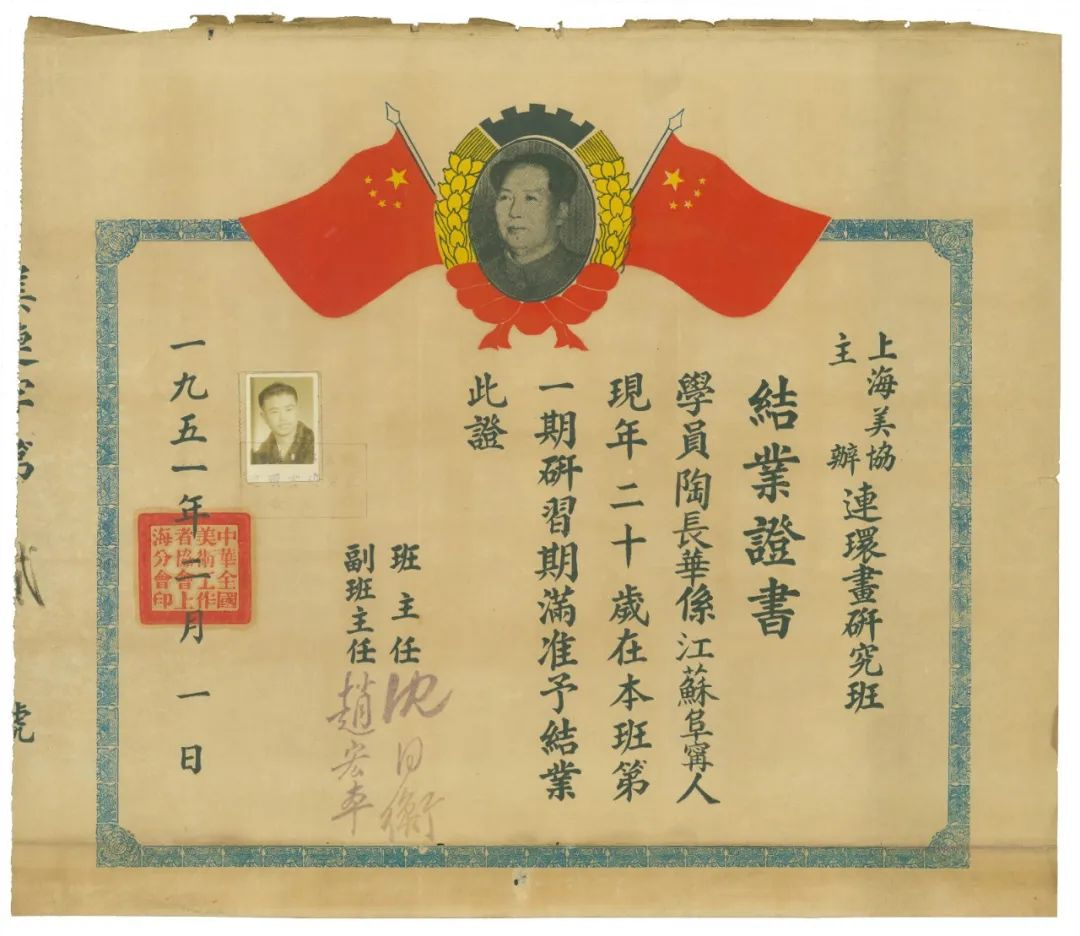 上海美協
主辦
連環畫研究班
結業證書
學員陶長華係江蘇阜寧人
現年二十歲在本班第
一期研習期滿准予結業
此證
班主任 沈同衡
副班主任 趙宏本
一九五一年二月一日
中華全國
美術工作
者協會上
海分會印
第 號